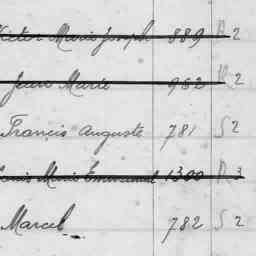 Victor Marie Joseph 889 R 2
Jean Marie 962 R 2
Francis Auguste 781 S 2
Louis Marie Emmanuel 1300 R 3
Marcel 782 S 2